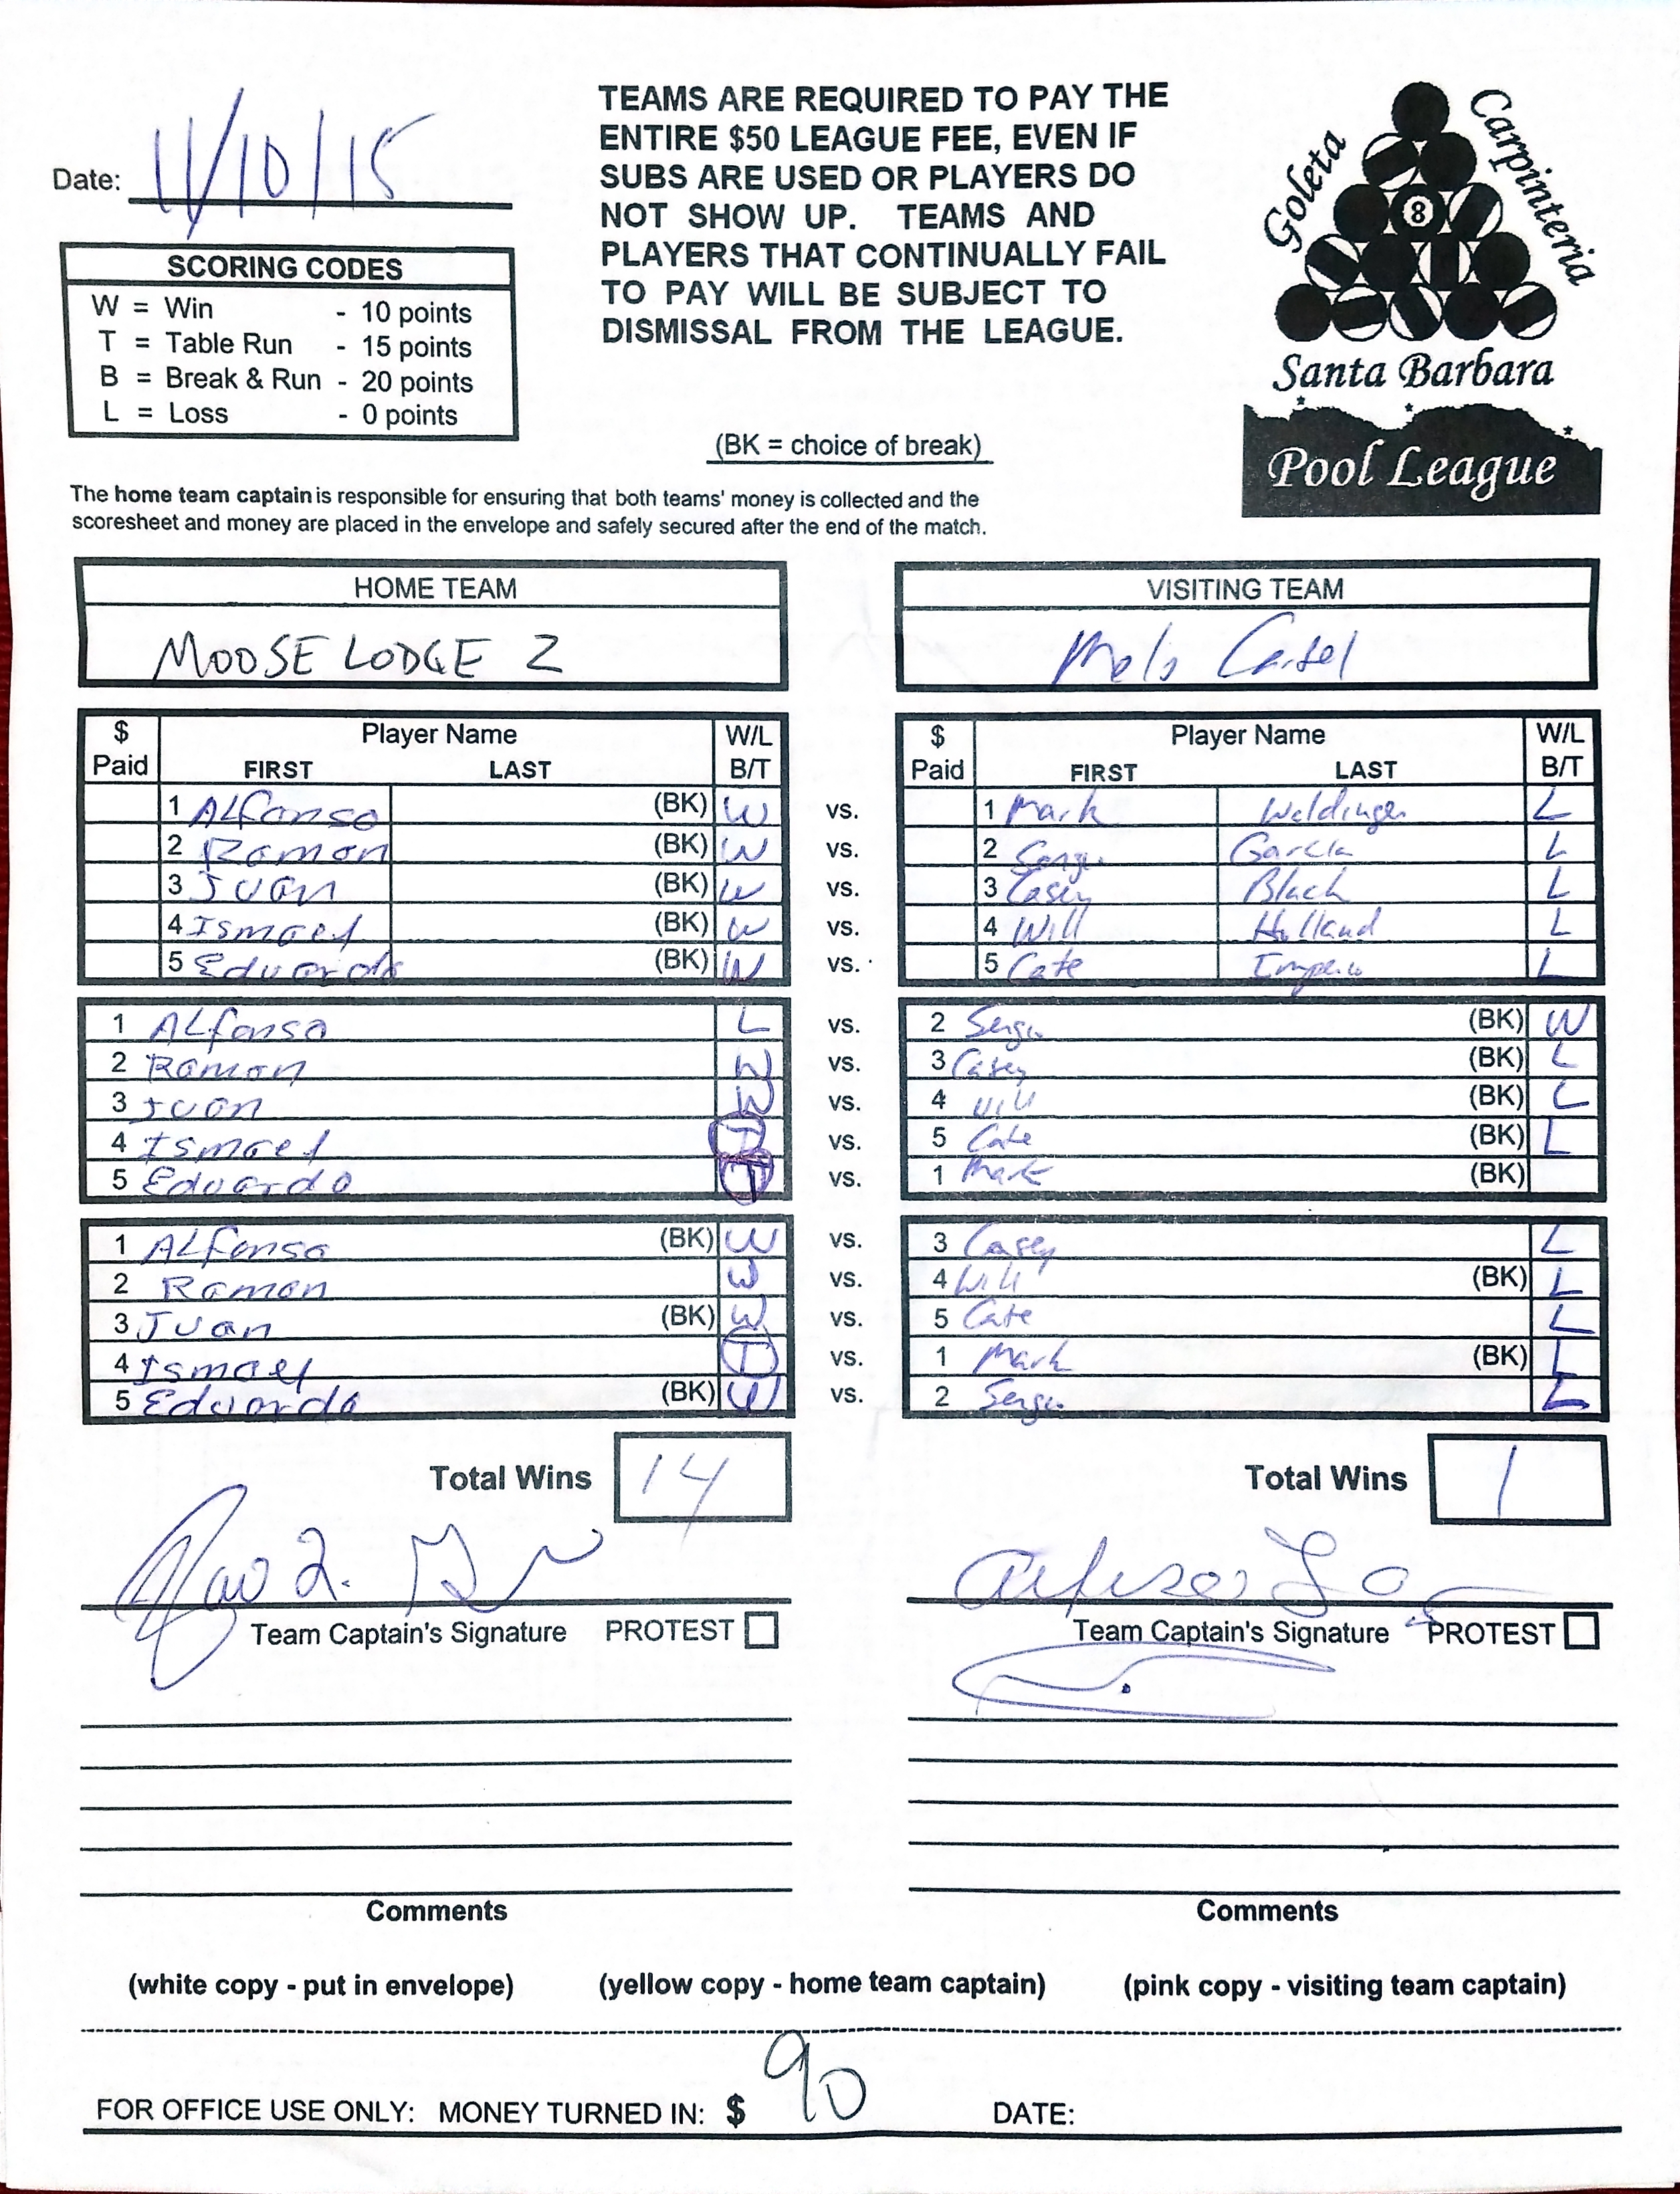 Date: 11/10/15
SCORING CODES
W = Win - 10 points
T = Table Run - 15 points
B = Break & Run - 20 points
L = Loss - 0 points
TEAMS ARE REQUIRED TO PAY THE
ENTIRE $50 LEAGUE FEE, EVEN IF
SUBS ARE USED OR PLAYERS DO
NOT SHOW UP. TEAMS AND
PLAYERS THAT CONTINUALLY FAIL
TO PAY WILL BE SUBJECT TO
DISMISSAL FROM THE LEAGUE.
(BK = choice of break)
Goleta
Carpinteria
8
Santa Barbara
Pool League
The home team captain is responsible for ensuring that both teams' money is collected and the
scoresheet and money are placed in the envelope and safely secured after the end of the match.
HOME TEAM VISITING TEAM
MOOSE LODGE 2
$ Paid Player Name FIRST LAST W/L B/T $ Paid Player Name FIRST LAST W/L B/T
1 ALfonso (BK) W vs. 1 Mark L
2 Ramon (BK) W vs. 2 Garcia L
3 Juan (BK) W vs. 3 Casey Black L
4 Ismael (BK) W vs. 4 Will Holland L
5 Eduardo (BK) W vs. 5 Cate L
1 ALfonso L vs. 2 (BK) W
2 Ramon W vs. 3 Casey (BK) L
3 Juan W vs. 4 Will (BK) L
4 Ismael T vs. 5 Cate (BK) L
5 Eduardo T vs. 1 Mark (BK)
1 ALfonso (BK) W vs. 3 Casey L
2 Ramon W vs. 4 Will (BK) L
3 Juan (BK) W vs. 5 Cate L
4 Ismael T vs. 1 Mark (BK) L
5 Eduardo (BK) W vs. 2 L
Total Wins 14 Total Wins 1
Team Captain's Signature PROTEST Team Captain's Signature PROTEST
Comments Comments
(white copy - put in envelope) (yellow copy - home team captain) (pink copy - visiting team captain)
FOR OFFICE USE ONLY: MONEY TURNED IN: $ 90 DATE: